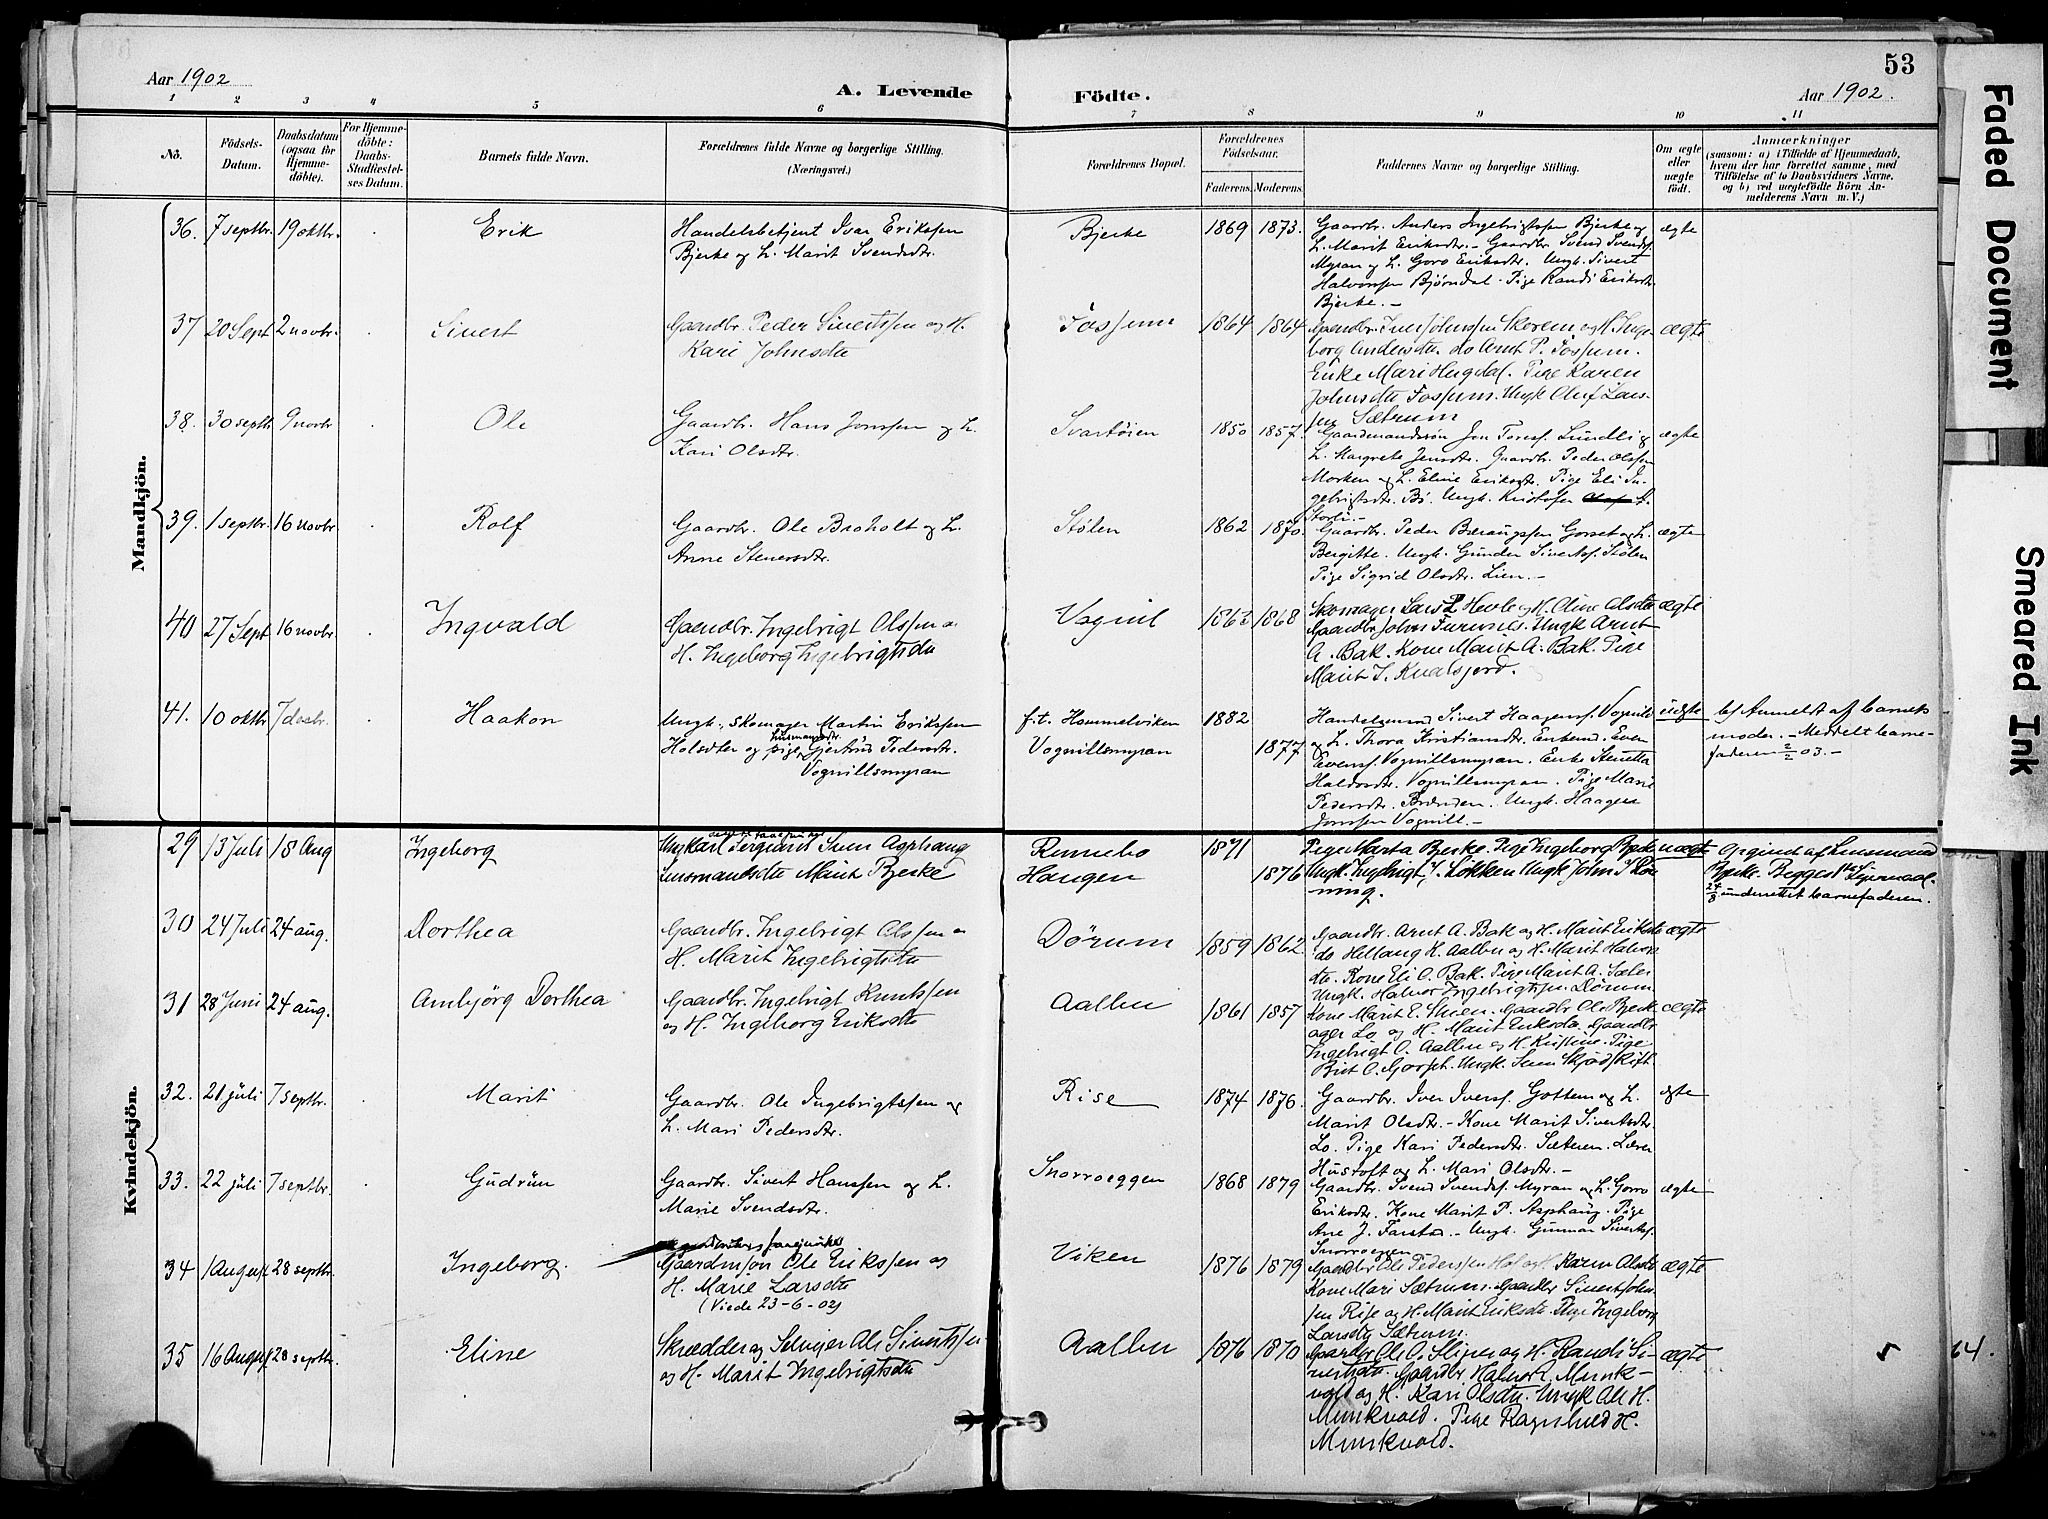 53
Aar 1902
A. Levende
Födte.
Aar 1902.
1 2 3 4 5 6 7 8 9 10 11
No.
Födsels-Datum.
Daabsdatum (ogsaa for Hjemme-döbte).
For Hjemme-döbte: Daabs-Stadfæstel-ses Datum.
Barnets fulde Navn.
Forældrenes fulde Navne og borgerlige Stilling.
(Næringsvei.)
Forældrenes Bopæl.
Forældrenes Födselsaar.
Faderens.
Moderens.
Faddernes Navne og borgerlige Stilling.
Om ægte eller uægte födt.
Anmærkninger
(saasom: a) i Tilfælde af Hjemmedaab,
hvem der har forrettet samme, med
Tilföielse af to Daabsvidners Navne,
og b) ved uægtefödte Börn An-
melderens Navn m. V.)
Mandkjön.
36. 7 septbr. 19 oktbr. Erik
Handelsbetjent Ivar Eriksen
Bjerke og h. Marit Svendsdtr.
Bjerke 1869 1873.
Gaardbr. Anders Ingebrigtssen Bjerke og
h. Marit Eriksdtr. - Gaardbr. Svend Svendsf.
Myran og h. Goro Eriksdtr. Ungk. Sivert
Halvorssen Bjørndal. Pige Randi Eriksdtr.
Bjerke. -
ægte
37 20 Sept 2 novbr. Sivert
Gaardbr. Peder Sivertssen og H.
Kari Johnsdtr
Fossum 1864 1864
borg Andersdtr. do Arnt P. Fossum.
Enke Mari Hugdal. Pige Karen
Johnsdtr Fossum. Ungk Oluf Lars-
sen Sætrum
ægte
38. 30 septbr 9 novbr Ole
Gaardbr. Hans Jonssen og h.
Kari Olsdtr.
Svartøien 1850 1857.
Gaardmandssøn Jon Toresf. Lundli og
h. Margrete Jensdtr. Gaardbr. Peder Olssen
Morken og h. Eline Eriksdtr. Pige Eli In-
gebrigtsdtr. Bö. Ungk. Kristofer
Storli. -
ægte
39. 1 septbr. 16 novbr. Rolf
Gaardbr. Ole Broholt og h.
Anne Stenersdtr.
Stølen 1862 1870.
Gaardbr. Peder Gorset og h.
Bergitte. Ungk. Gunder Sivertsf. Stølen
Pige Sigrid Olsdtr. Lien. -
ægte
40 27 Sept 16 novbr. Ingvald
Gaardbr. Ingebrigt Olssen og
H. Ingeborg Ingebrigtsdtr
Vognil 1863 1868
Skomager Lars L Hevle og H. Oline Olsdtr
Gaardbr John Ungk Arnt
A. Bak. Kone Marit A. Bak. Pige
Marit I.
ægte
41. 10 oktbr 7 desbr. Haakon
Ungk. skomager Martin Erikssen
Holsdter og pige husmandsdtr. Gjertrud Pedersdtr.
Vognillsmyran
f.t. Hommelviken 1882
Vognillsmyran 1877
Handelsmand Sivert Haagensf. Vognill
og h. Thora Kristiansdtr. Enkemd. Even
Evensf. Vognillsmyran. Enke Steretta
Haldorsdtr. Vognillsmyran. Pige Marie
Pedersdtr. Brænden. Ungk. Haagen
Jonssen Vognill. -
uægte
b) Anmeldt af barnets
moder. - Meddelt barne-
faderen 2/2 03. -
Kvindekjön.
29 13 Juli 18 Aug Ingeborg
Ungkarl Sergeant Sven Asphaug
Lensmandsdtr Marit Bjerke
Rennebo 1871
Haugen 1876
Pige Marta Bjerke. Pige Ingeborg Bjerke
Ungk. Ingebrigt J. Løkken Ungk John
uægte
Opgivet af Lensmand
Bjerke. Begges 1ste Leiermaal.
24/8 underrettet barnefaderen.
30 24 Juli 24 aug. Dorthea
Gaardbr. Ingebrigt Olssen og
H. Marit Ingebrigtsdtr
Dörum 1859 1862
Gaardbr. Arnt A. Bak og H. Marit Eriksdtr
do Hellang K. Aalbu og H. Marit Halvors
dtr. Kone Eli O. Bak. Pige Marit A. Sæter
Ungk. Halvor Ingebrigtssen Dörum
ægte
31 28 Juni 24 aug. Ambjörg Dorthea
Gaardbr. Ingebrigt Knutssen
og H. Ingeborg Eriksdtr
Aalbu 1861 1857
Kone Marit E. Gaardbr Ole Bjerk-
ager Lo og H. Marit Eriksdtr. Gaardbr
Ingebrigt O. Aalbu og H. Kristine. Pige
Brit O. Ungk. Sven
ægte
32. 21 juli 7 septbr. Marit
Gaardbr. Ole Ingebrigtssen og
h. Mari Pedersdtr.
Rise 1874 1876.
Gaardbr. Iver Iversf. Gottem og h.
Marit Olsdtr. - Kone Marit Sivertsdtr.
Lo. Pige Kari Pedersdtr. Sæteren. Lærer
Hustoft og h. Mari Olsdtr. -
ægte
33. 22 juli 7 septbr. Gudrun
Gaardbr. Sivert Hanssen og h.
Marie Svendsdtr.
Snorroeggen 1868 1879
Gaardbr. Svend Svendsf. Myran og h. Gorro
Eriksdtr. Kone Marit P. Asphaug. Pige
Ane J. Farstad. Ungk. Gunnar Sivertsf.
Snorroeggen
ægte
34 1 August 28 septbr. Ingeborg.
Gaardmsön Ole Erikssen og
H. Marie Larsdtr
(Viede 23-6-02)
Viken 1876 1879
Gaardbr Ole Pederssen Hol og H. Karen Olsdtr
Kone Mari Sætrum. Gaardbr Sivert John-
sen Rise og H. Marit Eriksdtr. Pige Ingeborg
Larsdtr Sætrum.
ægte
35 16 August 28 septbr. Eline
Skrædder og Selveier Ole Sivertssen
og H. Marit Ingebrigtsdtr
Aalbu 1876 1870
Gaardbr Ole O. Sliper og H. Randi Si-
vertsdtr. Gaardbr Halvor A. Munk-
vold og H. Kari Olsdtr. Ungk Ole H.
Munkvold. Pige Ragnhild H.
Munkvold.
ægte
64.
Faded Document
Smeared Ink